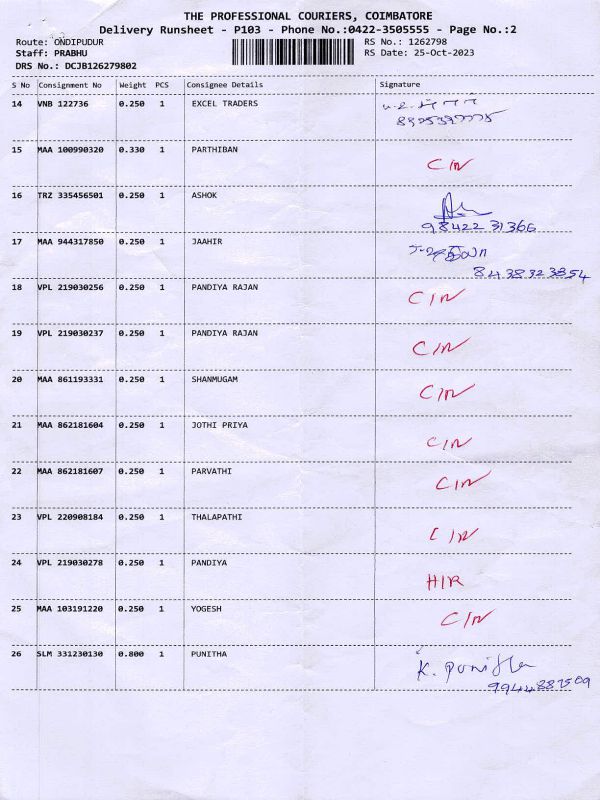 THE PROFESSIONAL COURIERS, COIMBATORE
Delivery Runsheet - P103 - Phone No.:0422-3505555 - Page No.:2
Route: ONDIPUDUR RS No.: 1262798
Staff: PRABHU RS Date: 25-Oct-2023
DRS No.: DCJB126279802
S No Consignment No Weight PCS Consignee Details Signature
14 VNB 122736 0.250 1 EXCEL TRADERS
15 MAA 100990320 0.330 1 PARTHIBAN C/N
16 TRZ 335456501 0.250 1 ASHOK
98422 31366
17 MAA 944317850 0.250 1 JAAHIR
8438323854
18 VPL 219030256 0.250 1 PANDIYA RAJAN C/N
19 VPL 219030237 0.250 1 PANDIYA RAJAN C/N
20 MAA 861193331 0.250 1 SHANMUGAM C/N
21 MAA 862181604 0.250 1 JOTHI PRIYA C/N
22 MAA 862181607 0.250 1 PARVATHI C/N
23 VPL 220908184 0.250 1 THALAPATHI C/N
24 VPL 219030278 0.250 1 PANDIYA H/R
25 MAA 103191220 0.250 1 YOGESH C/N
26 SLM 331230130 0.800 1 PUNITHA K. Punitha